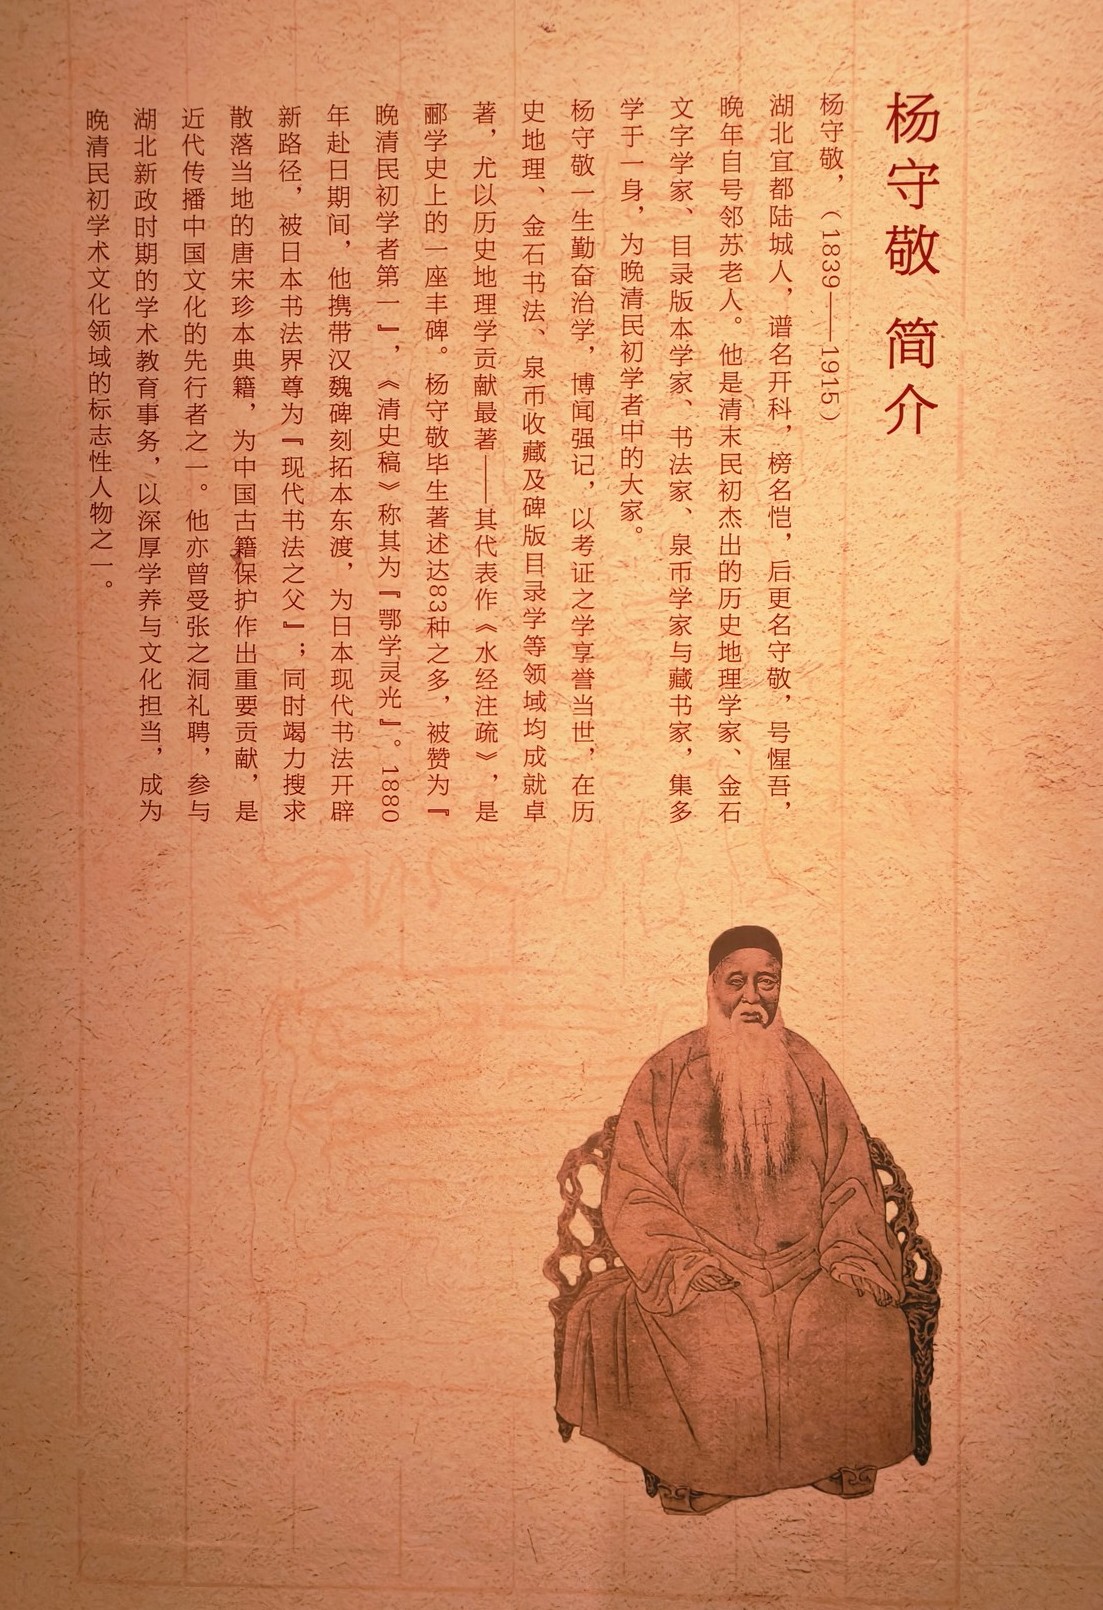 杨守敬 简介
杨守敬，（1839——1915）
湖北宜都陆城人，谱名开科，榜名恺，后更名守敬，号惺吾，
晚年自号邻苏老人。他是清末民初杰出的历史地理学家、金石
文字学家、目录版本学家、书法家、泉币学家与藏书家，集多
学于一身，为晚清民初学者中的大家。
杨守敬一生勤奋治学，博闻强记，以考证之学享誉当世，在历
史地理、金石书法、泉币收藏及碑版目录学等领域均成就卓
著，尤以历史地理学贡献最著——其代表作《水经注疏》，是
郦学史上的一座丰碑。杨守敬毕生著述达83种之多，被赞为『
晚清民初学者第一』，《清史稿》称其为『鄂学灵光』。1880
年赴日期间，他携带汉魏碑刻拓本东渡，为日本现代书法开辟
新路径，被日本书法界尊为『现代书法之父』；同时竭力搜求
散落当地的唐宋珍本典籍，为中国古籍保护作出重要贡献，是
近代传播中国文化的先行者之一。他亦曾受张之洞礼聘，参与
湖北新政时期的学术教育事务，以深厚学养与文化担当，成为
晚清民初学术文化领域的标志性人物之一。